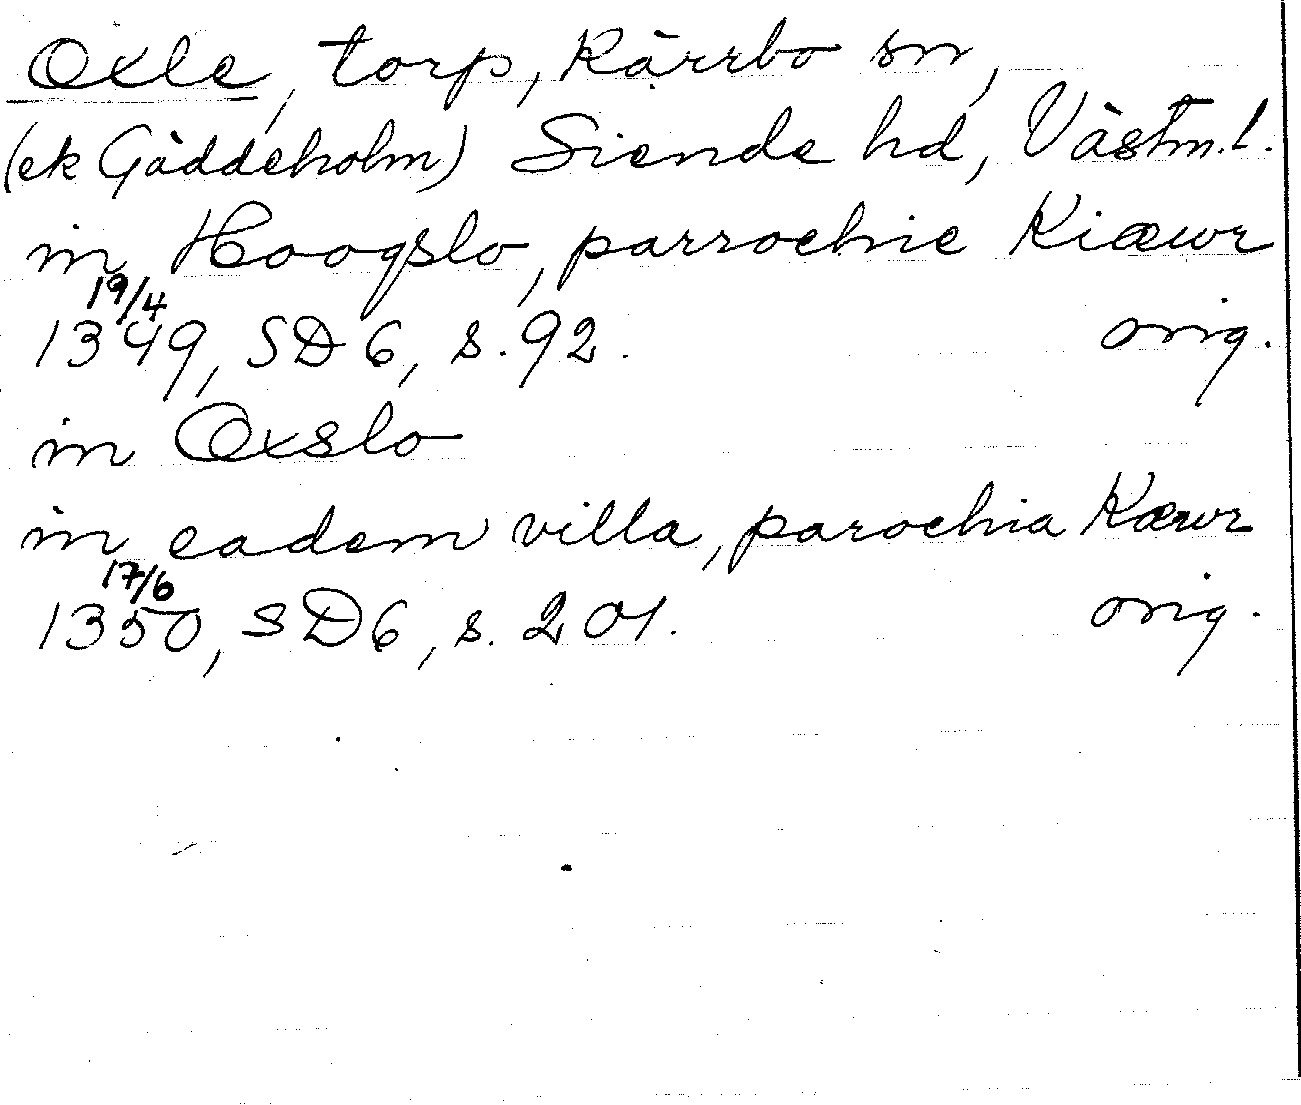 Oxle, torp, Kärrbo sn,
(ek Gäddeholm) Siende hd, Västm. l.
in Hoogslo, parrochie Kiæwr
19/4
1349, SD 6, s. 92. orig.
in Oxslo
in eadem villa, parochia Kæwr
17/6
1350, SD 6, s. 201. orig.